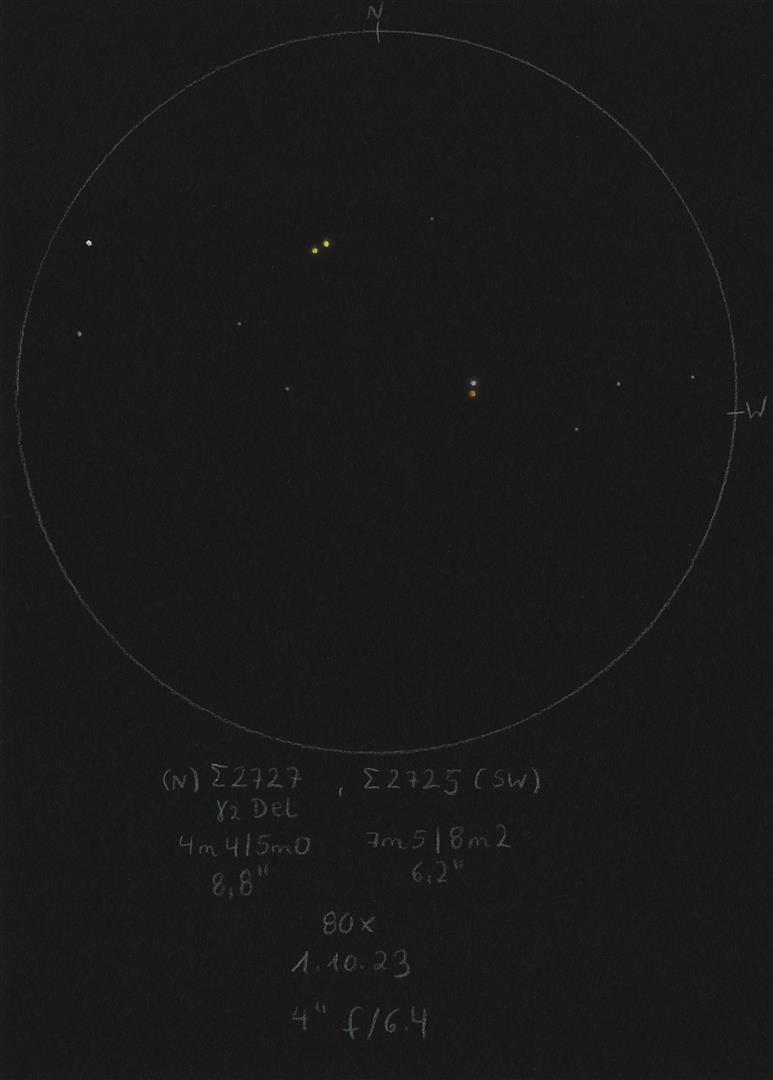 N
W
(N) Σ2727 , Σ2725 (SW)
γ2 Del
4m4|5m0 7m5|8m2
8,8" 6,2"
80x
1.10.23
4" f/6.4